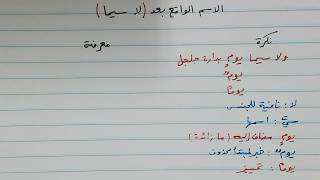 الاسم الواقع بعد (لا سيما)
نكرة
معرفة
ولا سيما يومٍ بدارة جلجل
يومٌ
يومًا
لا: نافية للجنس
سيّ: اسمها
يومٍ مضاف إليه (ما زائدة)
يومٌ: خبر لمبتدأ محذوف
يومًا: تمييز